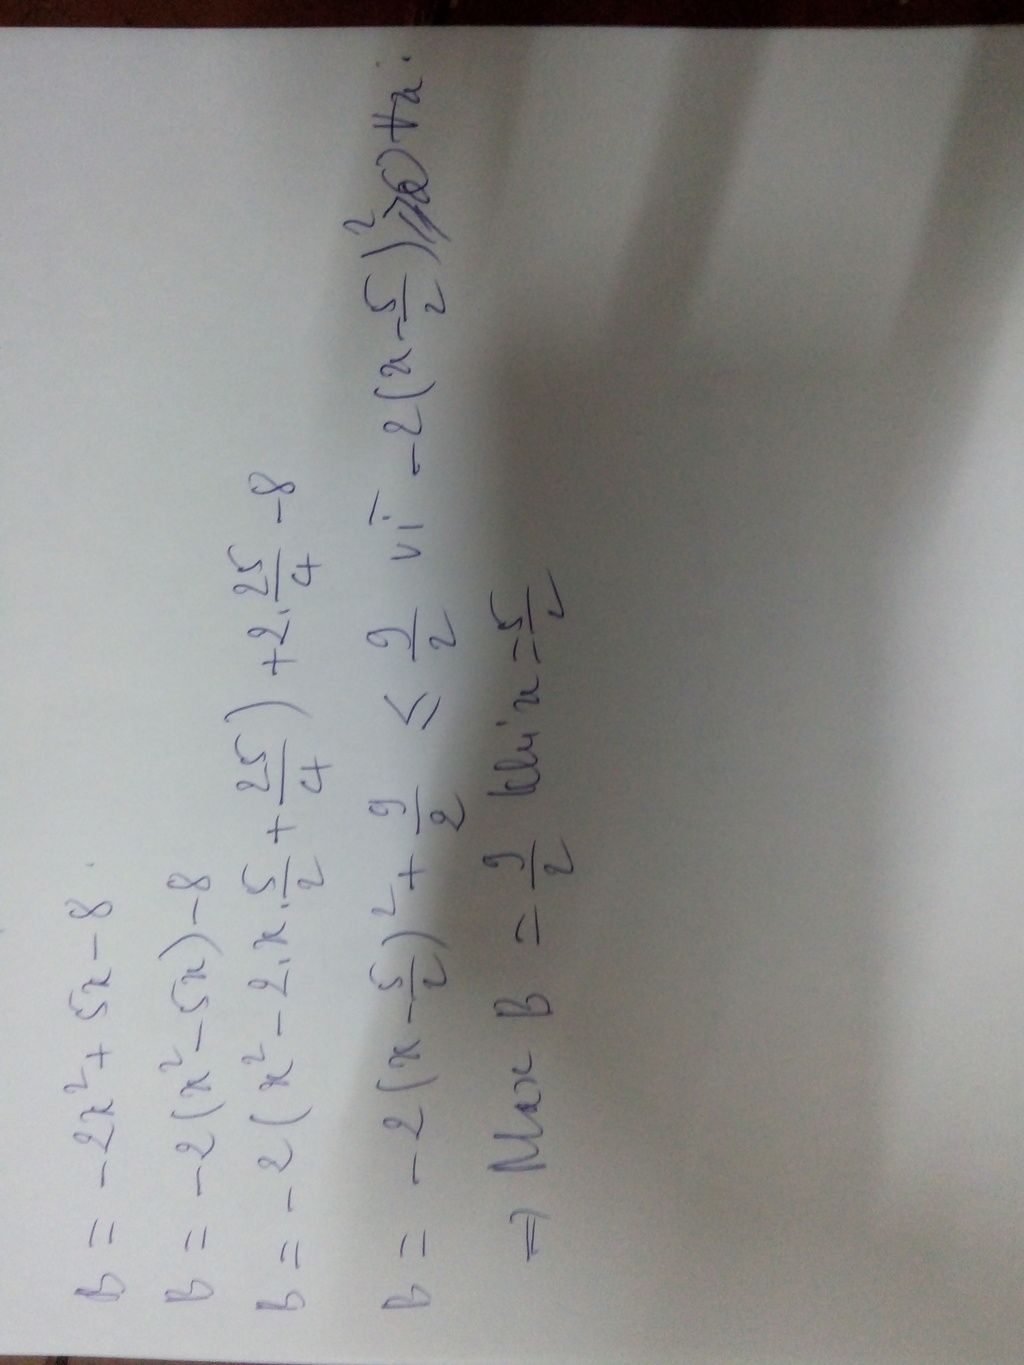 B = -2x² + 5x - 8.
B = -2(x² - 5x) - 8
B = -2(x² - 2.x.5/2 + 25/4) + 2.25/4 - 8
B = -2(x - 5/2)² + 9/2 ≤ 9/2 vì -2(x - 5/2)² ∀x.
⇒ Max B = 9/2 khi x = 5/2